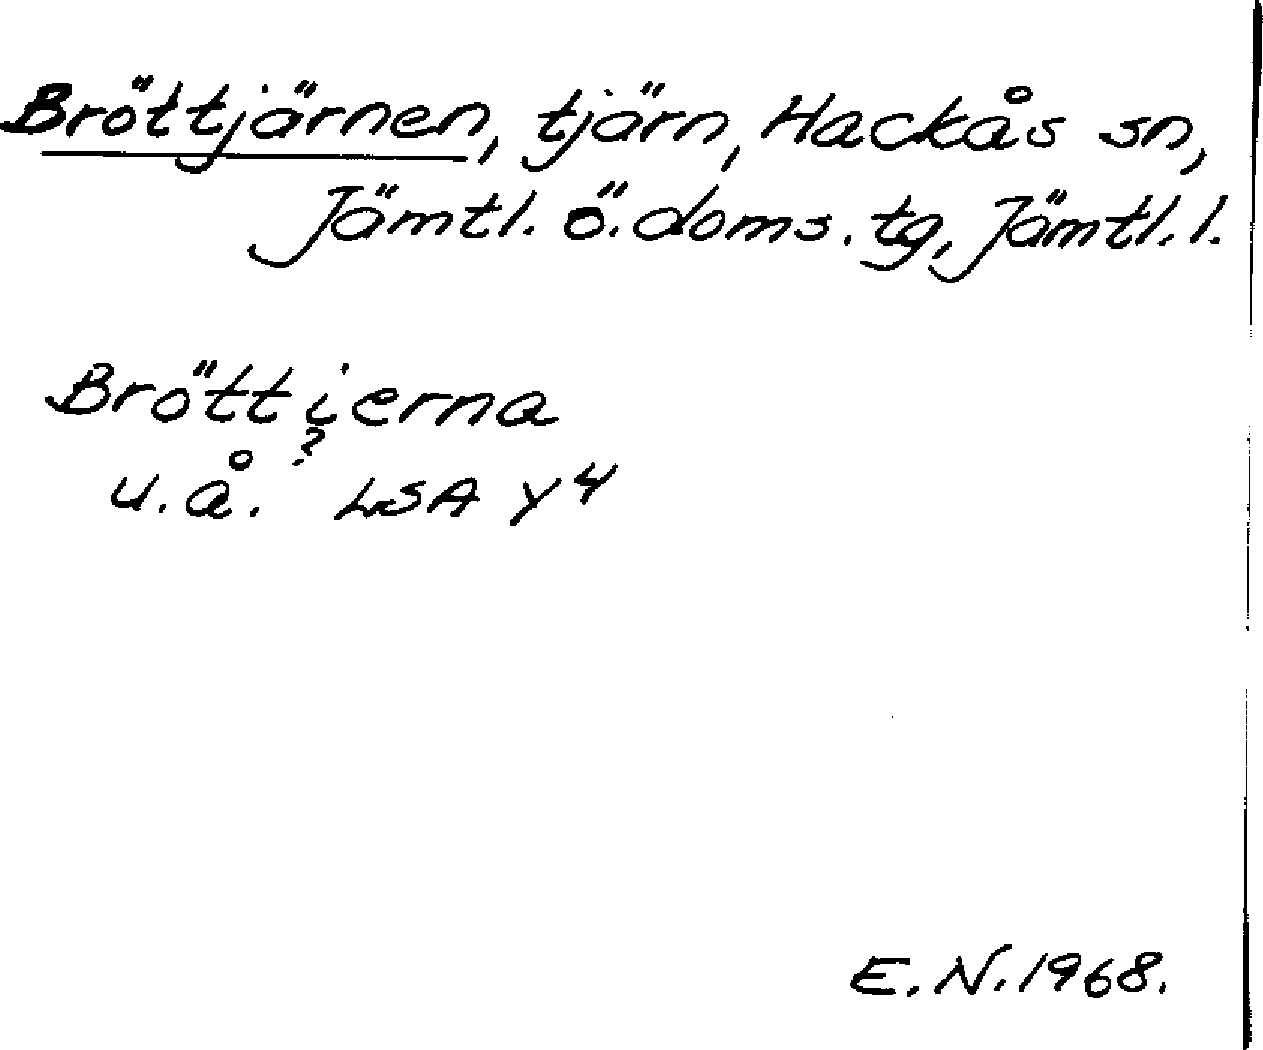 Bröttjärnen, tjärn, Hackås sn,
Jämtl. ö. doms. tg, Jämtl. l.
Bröttierna
?
u. å. LSA Y4
E. N. 1968.